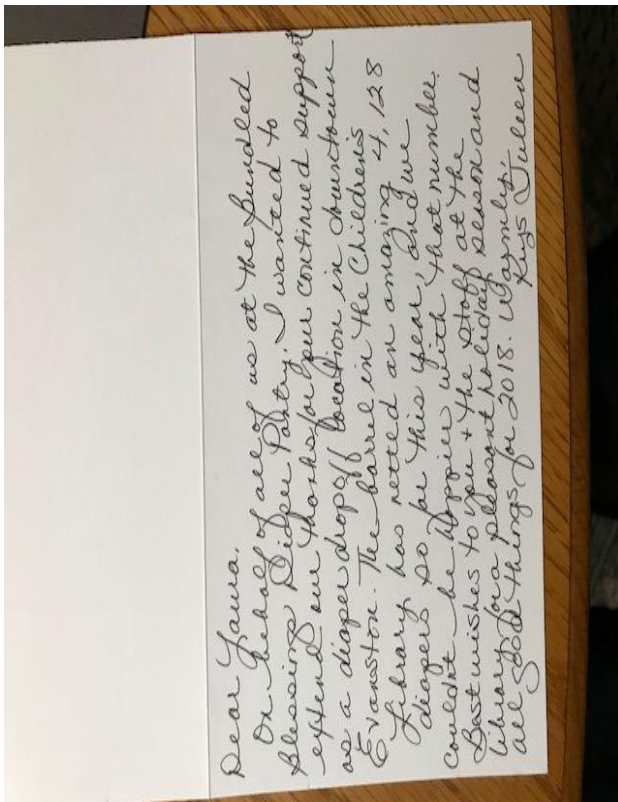 Dear Laura,
On behalf of all of us at the Bundled
Blessings Diaper Pantry, I wanted to
extend our thanks for your continued support
as a diaper dropoff location in downtown
Evanston. The barrel in the Children's
Library has netted an amazing 4,128
diapers so far this year, and we
couldn't be happier with that number.
Best wishes to you + the staff at the
library for a pleasant holiday season and
all good things for 2018. Warmly,